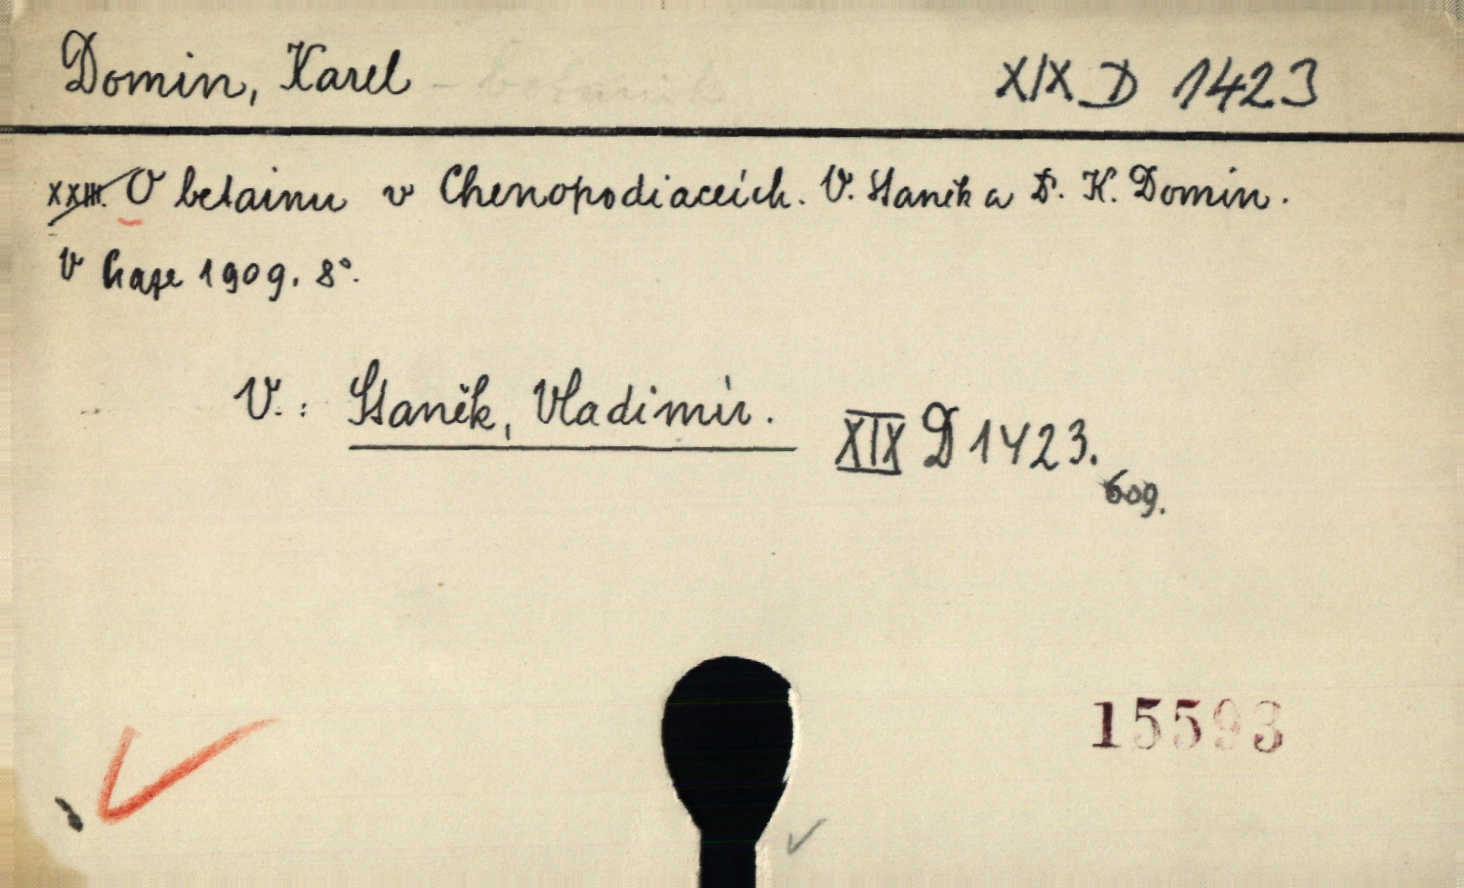 Domin, Karel - botanik XIX D 1423
XXIII. O betainu v Chenopodiaceích. V. Staněk a D. K. Domin.
V Praze 1909. 8°.
V.: Staněk, Vladimír. XIX D 1423.
609.
15593